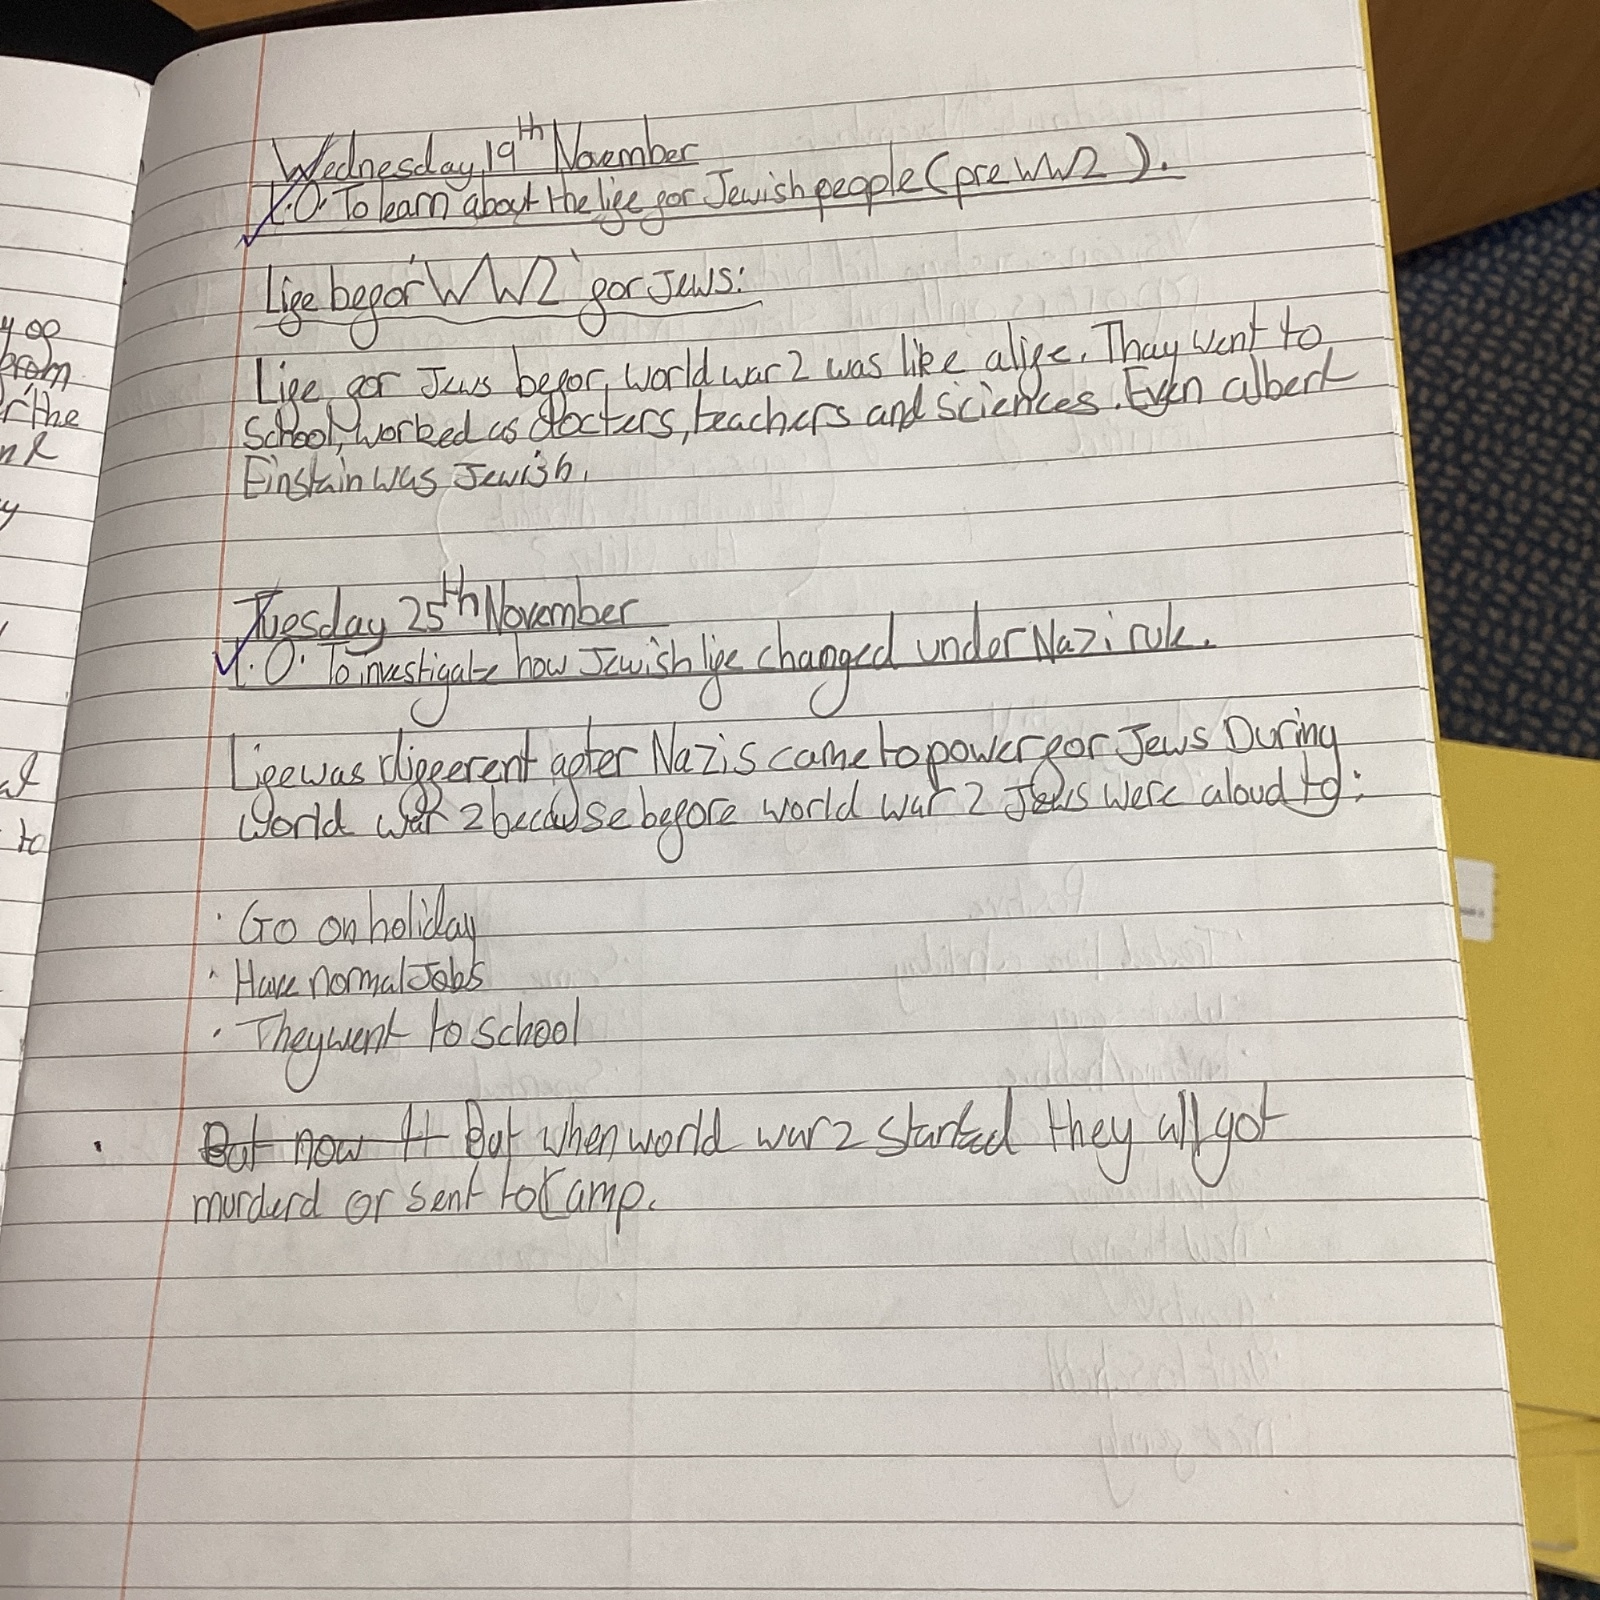 y of
from
r the
nk
y
at
to
Wednesday, 19th November
L.O. To learn about the life for Jewish people (pre WW2).
Life befor WW2 for Jews:
Life for Jews befor, world war 2 was like alife. Thay went to
School, worked as docters, teachers and sciences. Even albert
Einstain was Jewish.
Tuesday 25th November
L.O. To investigate how Jewish life changed under Nazi rule.
Life was different after Nazis came to power for Jews During
world war 2 because before world war 2 Jews were aloud to:
· Go on holiday
· Have normal Jobs
· They went to school
· But now It But when world war 2 started they all got
murderd or sent to Camp.